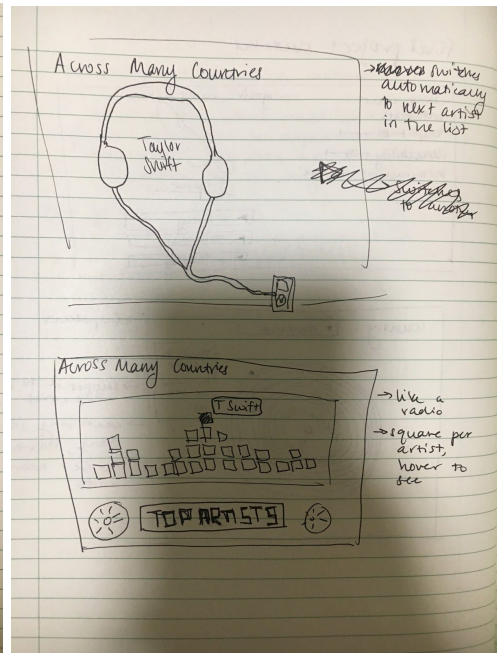 Across Many Countries
Taylor
Swift
→ switches
automatically
to next artist
in the list
switches
to another
Across Many Countries
T Swift
TOP ARTISTS
→ like a
radio
→ square per
artist,
hover to
see